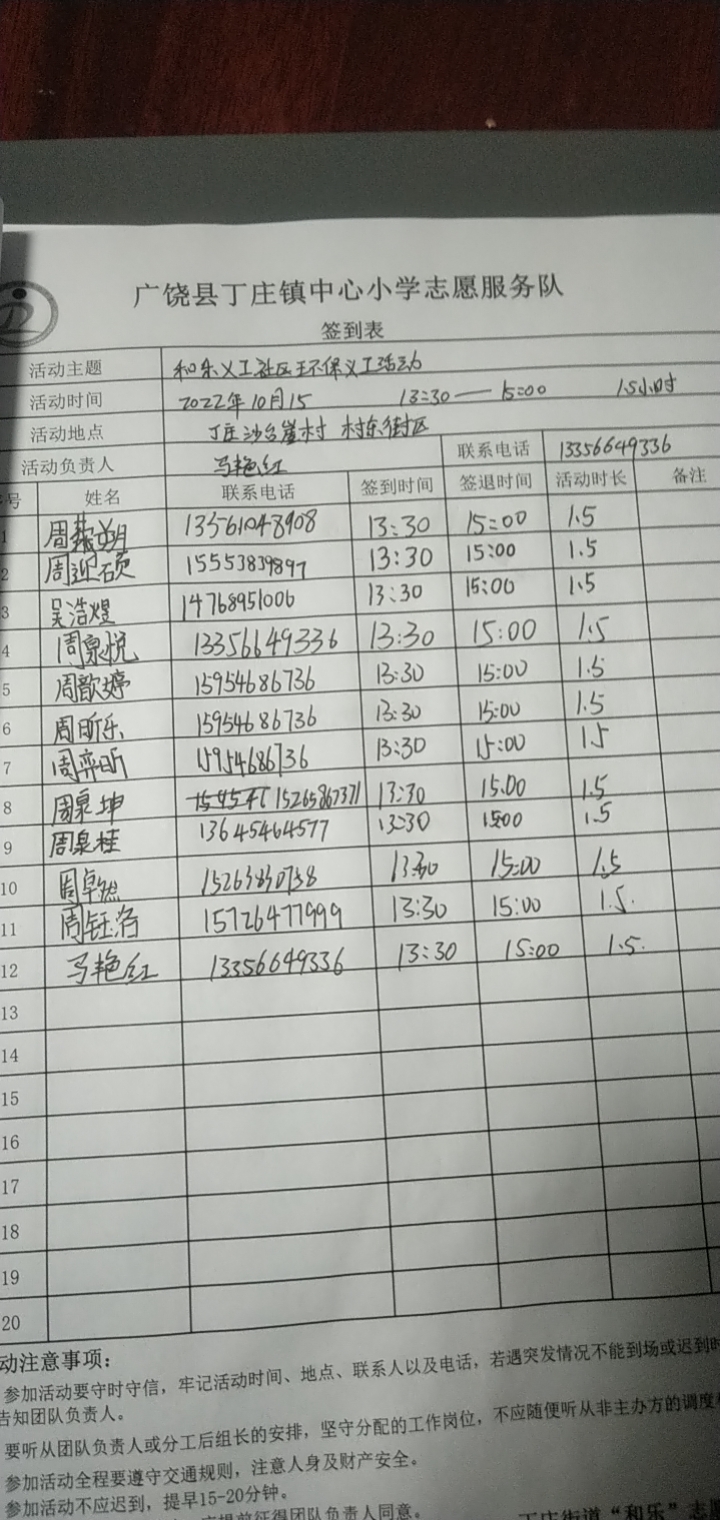 广饶县丁庄镇中心小学志愿服务队
签到表
活动主题 和乐义工社区环保义工活动
活动时间 2022年10月15 13:30 — 15:00 1.5小时
活动地点 丁庄沙台崖村 村东街区
活动负责人 马艳红 联系电话 13356649336
号 姓名 联系电话 签到时间 签退时间 活动时长 备注
1 13561048908 13:30 15:00 1.5
2 周迎硕 15553839897 13:30 15:00 1.5
3 吴浩煜 14768951006 13:30 15:00 1.5
4 周泉悦 13356649336 13:30 15:00 1.5
5 周歆婷 15954686736 13:30 15:00 1.5
6 周昕乐 15954686736 13:30 15:00 1.5
7 周奕昕 15954686736 13:30 15:00 1.5
8 周泉坤 15265867371 13:30 15:00 1.5
9 周泉桂 13645464577 13:30 15:00 1.5
10 周卓然 15263830758 13:30 15:00 1.5
11 周钰洛 15726477999 13:30 15:00 1.5.
12 马艳红 13356649336 13:30 15:00 1.5.
13
14
15
16
17
18
19
20
动注意事项：
参加活动要守时守信，牢记活动时间、地点、联系人以及电话，若遇突发情况不能到场或迟到时
告知团队负责人。
要听从团队负责人或分工后组长的安排，坚守分配的工作岗位，不应随便听从非主办方的调度
参加活动全程要遵守交通规则，注意人身及财产安全。
参加活动不应迟到，提早15-20分钟。
提前征得团队负责人同意。
丁庄街道“和乐”志愿